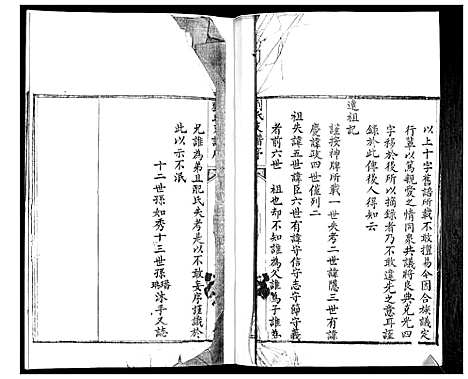 以上十字舊譜所載不敢擅易今因合族議定
行單以篤親愛之情同衆共議將良典克四
字移於後所以摘錄者乃不敢違先之意耳謹
錄於此傳後人得知云
遠祖記
謹按神牌所載一世失考二世諱隱三世有諱
慶諱政四世僅列二
祖失諱五世諱臣六世有諱守信守志守節守義
者前六世 祖也却不知誰為父誰為子誰為
兄誰為弟且配氏失考是以不敢妄序謹識於
此以示不泯
十二世孫如秀十三世孫璠珠沐手又誌